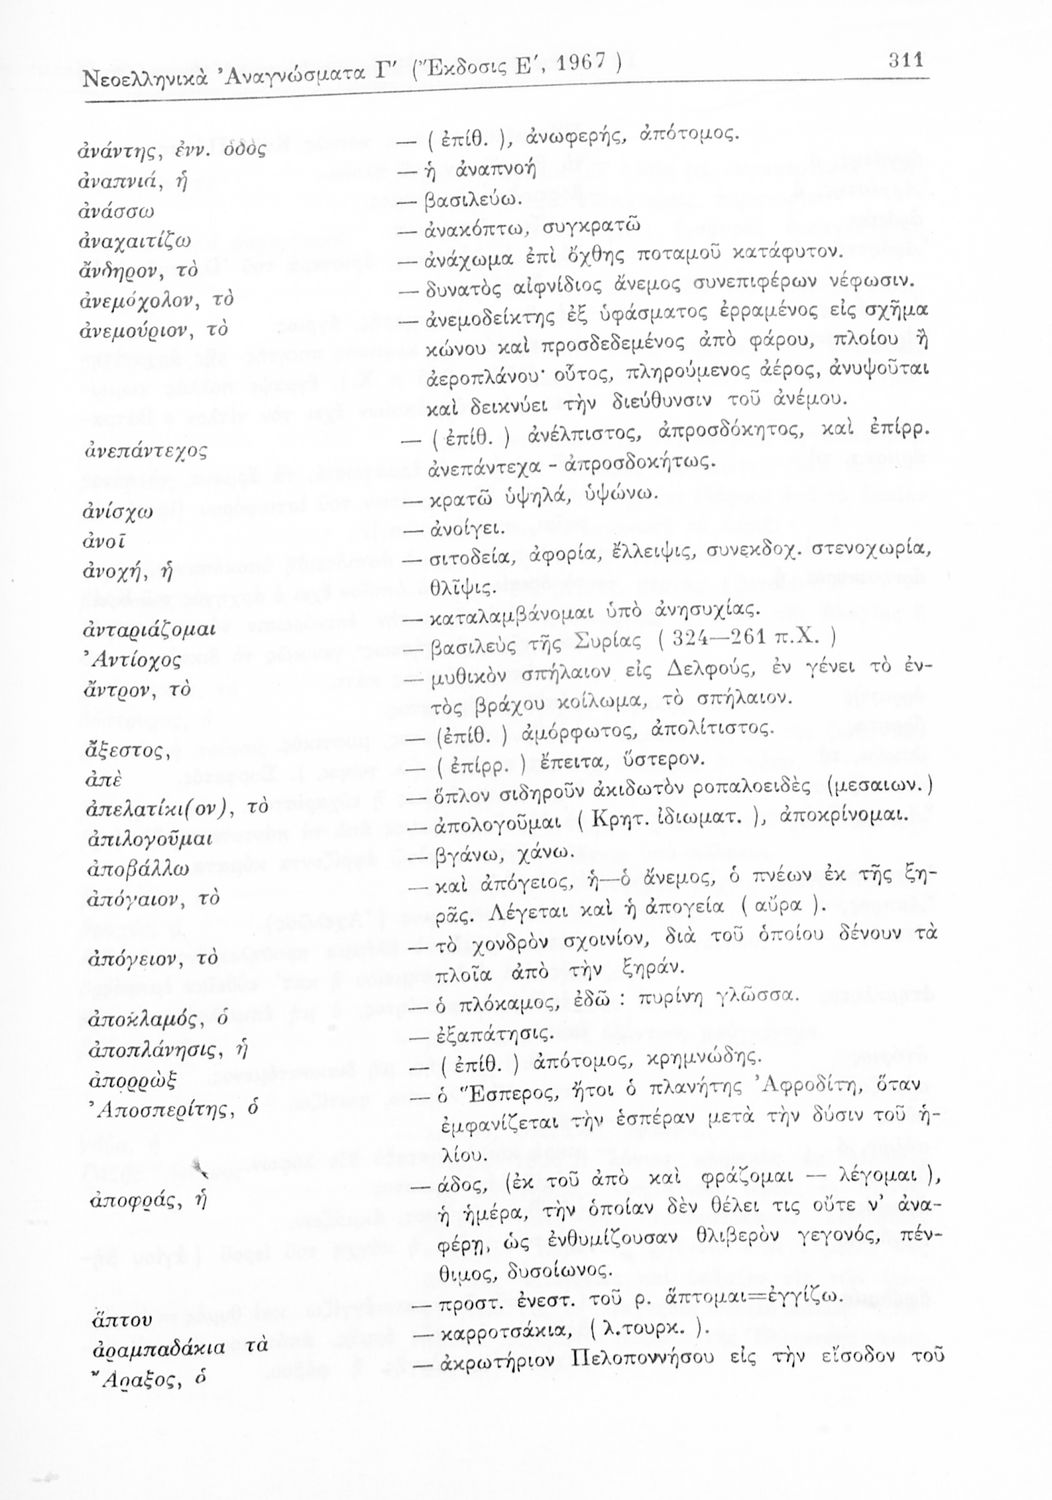 Νεοελληνικὰ Ἀναγνώσματα Γ΄ (Ἔκδοσις Ε΄, 1967 ) 311
ἀνάντης, ἐνν. ὁδὸς — ( ἐπίθ. ), ἀνωφερής, ἀπότομος.
ἀναπνιά, ἡ — ἡ ἀναπνοή
ἀνάσσω — βασιλεύω.
ἀναχαιτίζω — ἀνακόπτω, συγκρατῶ
ἄνδηρον, τὸ — ἀνάχωμα ἐπὶ ὄχθης ποταμοῦ κατάφυτον.
ἀνεμόχολον, τὸ — δυνατὸς αἰφνίδιος ἄνεμος συνεπιφέρων νέφωσιν.
ἀνεμούριον, τὸ — ἀνεμοδείκτης ἐξ ὑφάσματος ἐρραμένος εἰς σχῆμα
κώνου καὶ προσδεδεμένος ἀπὸ φάρου, πλοίου ἢ
ἀεροπλάνου· οὗτος, πληρούμενος ἀέρος, ἀνυψοῦται
καὶ δεικνύει τὴν διεύθυνσιν τοῦ ἀνέμου.
ἀνεπάντεχος — ( ἐπίθ. ) ἀνέλπιστος, ἀπροσδόκητος, καὶ ἐπίρρ.
ἀνεπάντεχα - ἀπροσδοκήτως.
ἀνίσχω — κρατῶ ὑψηλά, ὑψώνω.
ἀνοῖ — ἀνοίγει.
ἀνοχή, ἡ — σιτοδεία, ἀφορία, ἔλλειψις, συνεκδοχ. στενοχωρία,
θλῖψις.
ἀνταριάζομαι — καταλαμβάνομαι ὑπὸ ἀνησυχίας.
Ἀντίοχος — βασιλεὺς τῆς Συρίας ( 324—261 π.Χ. )
ἄντρον, τὸ — μυθικὸν σπήλαιον εἰς Δελφούς, ἐν γένει τὸ ἐν-
τὸς βράχου κοίλωμα, τὸ σπήλαιον.
ἄξεστος, — (ἐπίθ. ) ἀμόρφωτος, ἀπολίτιστος.
ἀπὲ — ( ἐπίρρ. ) ἔπειτα, ὕστερον.
ἀπελατίκι(ον), τὸ — ὅπλον σιδηροῦν ἀκιδωτὸν ροπαλοειδὲς (μεσαιων.)
ἀπιλογοῦμαι — ἀπολογοῦμαι ( Κρητ. ἰδιωματ. ), ἀποκρίνομαι.
ἀποβάλλω — βγάνω, χάνω.
ἀπόγαιον, τὸ — καὶ ἀπόγειος, ἡ—ὁ ἄνεμος, ὁ πνέων ἐκ τῆς ξη-
ρᾶς. Λέγεται καὶ ἡ ἀπογεία ( αὔρα ).
ἀπόγειον, τὸ — τὸ χονδρὸν σχοινίον, διὰ τοῦ ὁποίου δένουν τὰ
πλοῖα ἀπὸ τὴν ξηράν.
ἀποκλαμός, ὁ — ὁ πλόκαμος, ἐδῶ : πυρίνη γλῶσσα.
ἀποπλάνησις, ἡ — ἐξαπάτησις.
ἀπορρὼξ — ( ἐπίθ. ) ἀπότομος, κρημνώδης.
Ἀποσπερίτης, ὁ — ὁ Ἕσπερος, ἤτοι ὁ πλανήτης Ἀφροδίτη, ὅταν
ἐμφανίζεται τὴν ἑσπέραν μετὰ τὴν δύσιν τοῦ ἡ-
λίου.
ἀποφράς, ἡ — άδος, (ἐκ τοῦ ἀπὸ καὶ φράζομαι — λέγομαι ),
ἡ ἡμέρα, τὴν ὁποίαν δὲν θέλει τις οὔτε ν' ἀνα-
φέρῃ, ὡς ἐνθυμίζουσαν θλιβερὸν γεγονός, πέν-
θιμος, δυσοίωνος.
ἅπτου — προστ. ἐνεστ. τοῦ ρ. ἅπτομαι=ἐγγίζω.
ἀραμπαδάκια τὰ — καρροτσάκια, ( λ.τουρκ. ).
Ἄραξος, ὁ — ἀκρωτήριον Πελοποννήσου εἰς τὴν εἴσοδον τοῦ